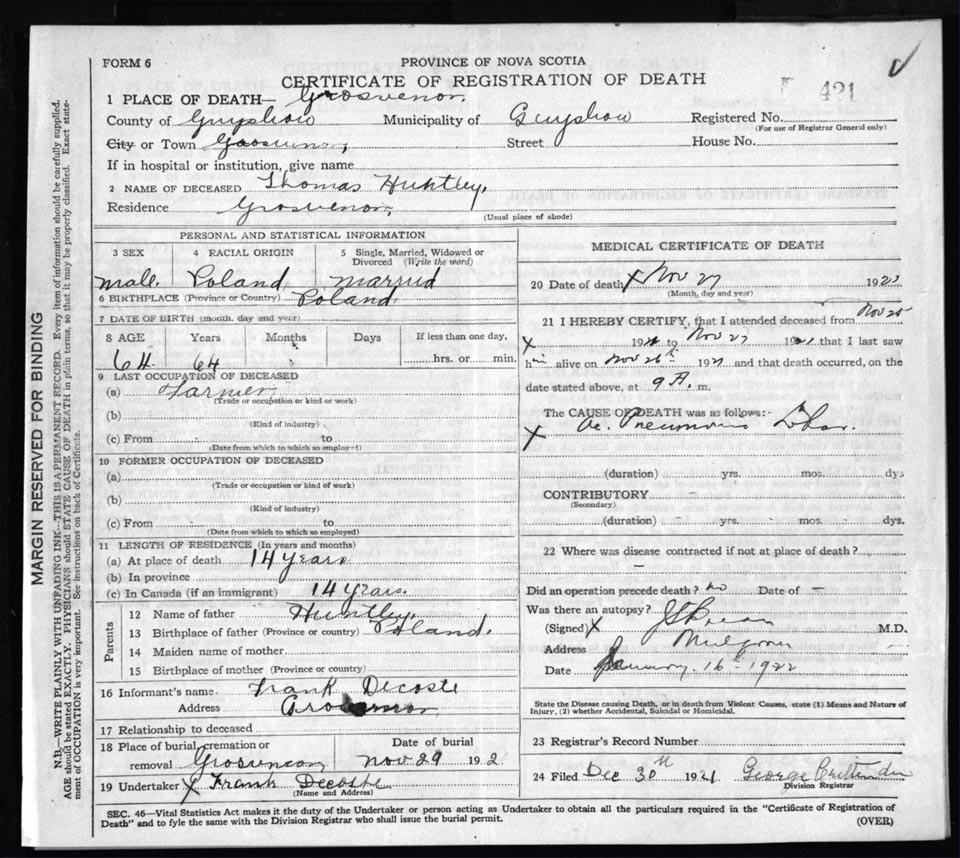 FORM 6
PROVINCE OF NOVA SCOTIA
CERTIFICATE OF REGISTRATION OF DEATH
421
1 PLACE OF DEATH— Grosvenor
County of Guysboro Municipality of Guysboro Registered No.
(For use of Registrar General only)
City or Town Grosvenor Street House No.
If in hospital or institution, give name
2 NAME OF DECEASED Thomas Huntley.
Residence Grosvenor,
(Usual place of abode)
PERSONAL AND STATISTICAL INFORMATION
3 SEX 4 RACIAL ORIGIN 5 Single, Married, Widowed or Divorced (Write the word)
male. Poland married
6 BIRTHPLACE (Province or Country) Poland.
7 DATE OF BIRTH (month, day and year)
8 AGE Years Months Days If less than one day,
64. 64 hrs. or min.
9 LAST OCCUPATION OF DECEASED
(a) Farmer
(Trade or occupation or kind or work)
(b)
(Kind of industry)
(c) From to
(Date from which to which so employed)
10 FORMER OCCUPATION OF DECEASED
(a)
(Trade or occupation or kind of work)
(b)
(Kind of industry)
(c) From to
(Date from which to which so employed)
11 LENGTH OF RESIDENCE (In years and months)
(a) At place of death 14 years
(b) In province
(c) In Canada (if an immigrant) 14 years.
Parents
12 Name of father Huntley.
13 Birthplace of father (Province or country) Poland.
14 Maiden name of mother
15 Birthplace of mother (Province or country)
16 Informant's name Frank Decoste
Address Grosvenor
17 Relationship to deceased
18 Place of burial, cremation or removal Grosvenor Date of burial Nov 29 192
19 Undertaker X Frank Decoste
(Name and Address)
MEDICAL CERTIFICATE OF DEATH
20 Date of death X Nov 27 192
(Month, day and year)
21 I HEREBY CERTIFY, that I attended deceased from Nov 25
X 1921 to Nov 27 1921 that I last saw
him alive on Nov 26th 1921 and that death occurred, on the
date stated above, at 9 A. m.
The CAUSE OF DEATH was as follows:-
X Ac. Pneumonia Lobar.
(duration) yrs. mos. dys
CONTRIBUTORY
(Secondary)
(duration) yrs. mos. dys.
22 Where was disease contracted if not at place of death?
Did an operation precede death? no Date of —
Was there an autopsy?
(Signed) X M.D.
Address Mulgrave
Date January 16th 1922
State the Disease causing Death, or in death from Violent Causes, state (1) Means and Nature of
Injury, (2) whether Accidental, Suicidal or Homicidal.
23 Registrar's Record Number
24 Filed Dec 30th 1921 George
Division Registrar
SEC. 46—Vital Statistics Act makes it the duty of the Undertaker or person acting as Undertaker to obtain all the particulars required in the "Certificate of Registration of
Death" and to fyle the same with the Division Registrar who shall issue the burial permit.
(OVER)
MARGIN RESERVED FOR BINDING
N.B.—WRITE PLAINLY WITH UNFADING INK—THIS IS A PERMANENT RECORD. Every item of information should be carefully supplied.
AGE should be stated EXACTLY. PHYSICIANS should STATE CAUSE OF DEATH in plain terms, so that it may be properly classified. Exact state-
ment of OCCUPATION is very important. See instructions on back of Certificate.